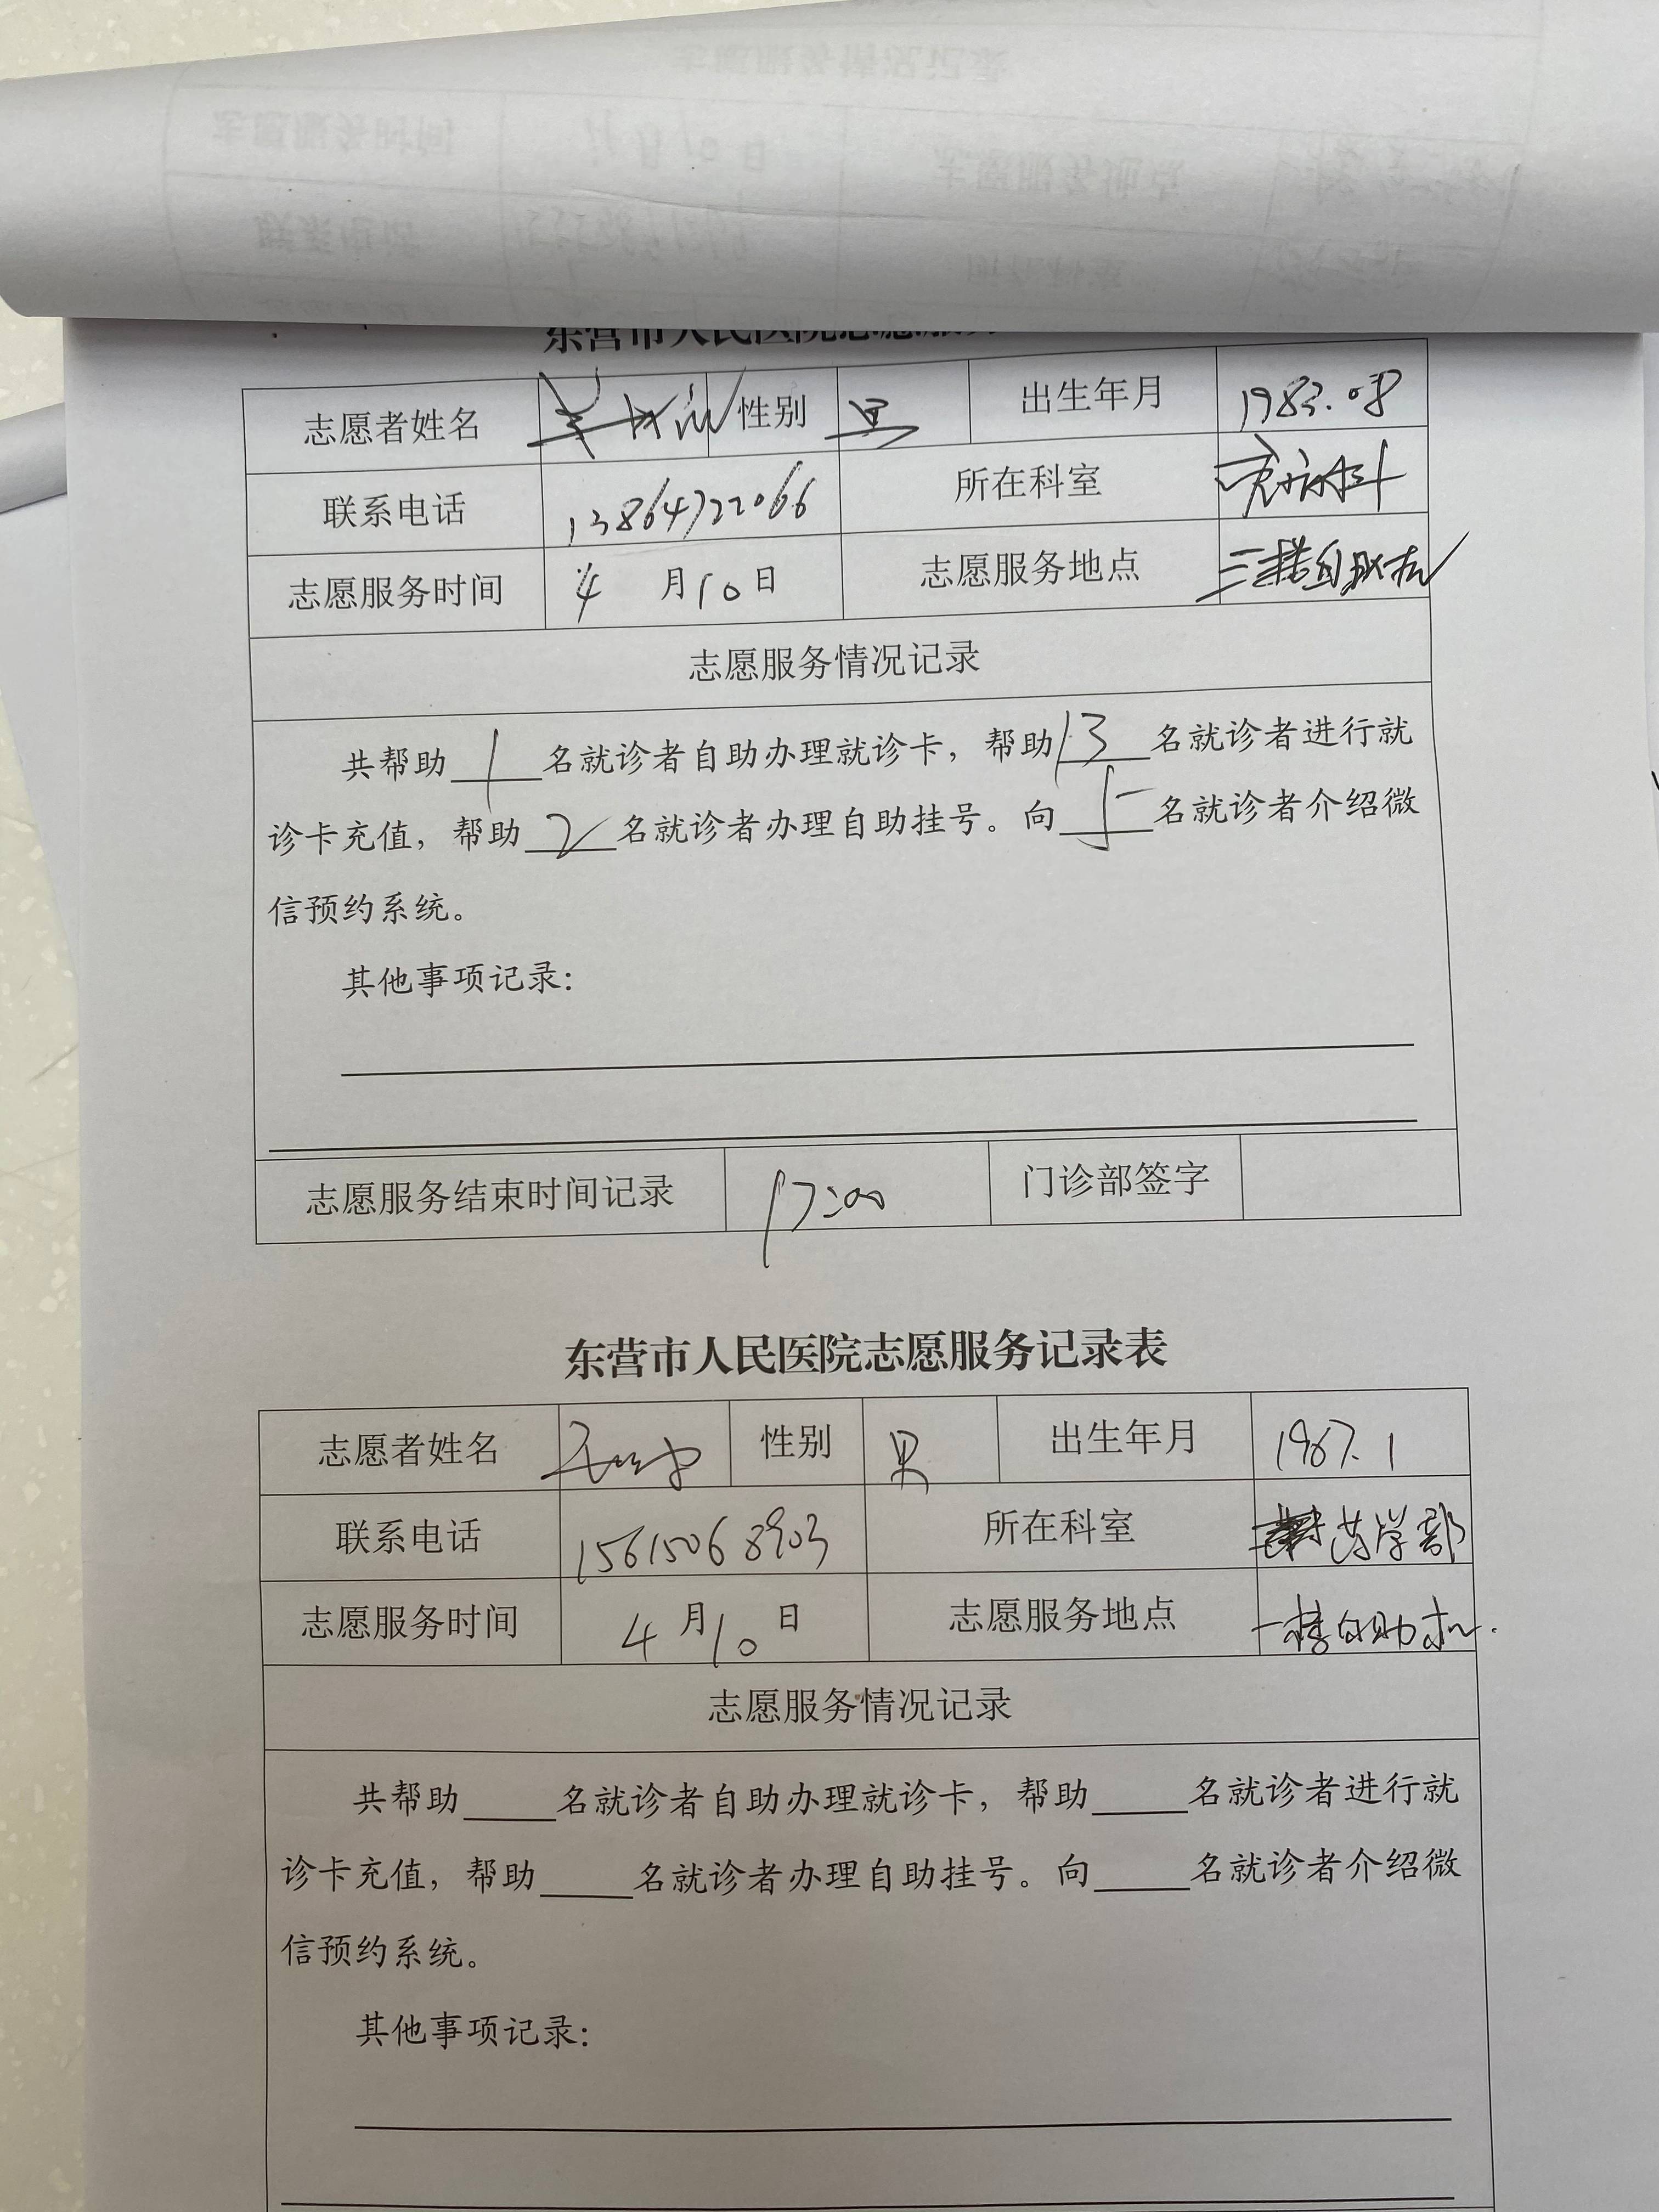 东营市人民医院志愿服务
志愿者姓名 性别 出生年月 1983.08
联系电话 13864722066 所在科室
志愿服务时间 4 月 10 日 志愿服务地点 三楼自助机
志愿服务情况记录
共帮助 1 名就诊者自助办理就诊卡，帮助 13 名就诊者进行就
诊卡充值，帮助 2 名就诊者办理自助挂号。向 5 名就诊者介绍微
信预约系统。
其他事项记录：
志愿服务结束时间记录 17:00 门诊部签字
东营市人民医院志愿服务记录表
志愿者姓名 性别 男 出生年月 1967.1
联系电话 15615068903 所在科室 药学部
志愿服务时间 4 月 10 日 志愿服务地点 一楼自助机.
志愿服务情况记录
共帮助____名就诊者自助办理就诊卡，帮助____名就诊者进行就
诊卡充值，帮助____名就诊者办理自助挂号。向____名就诊者介绍微
信预约系统。
其他事项记录：